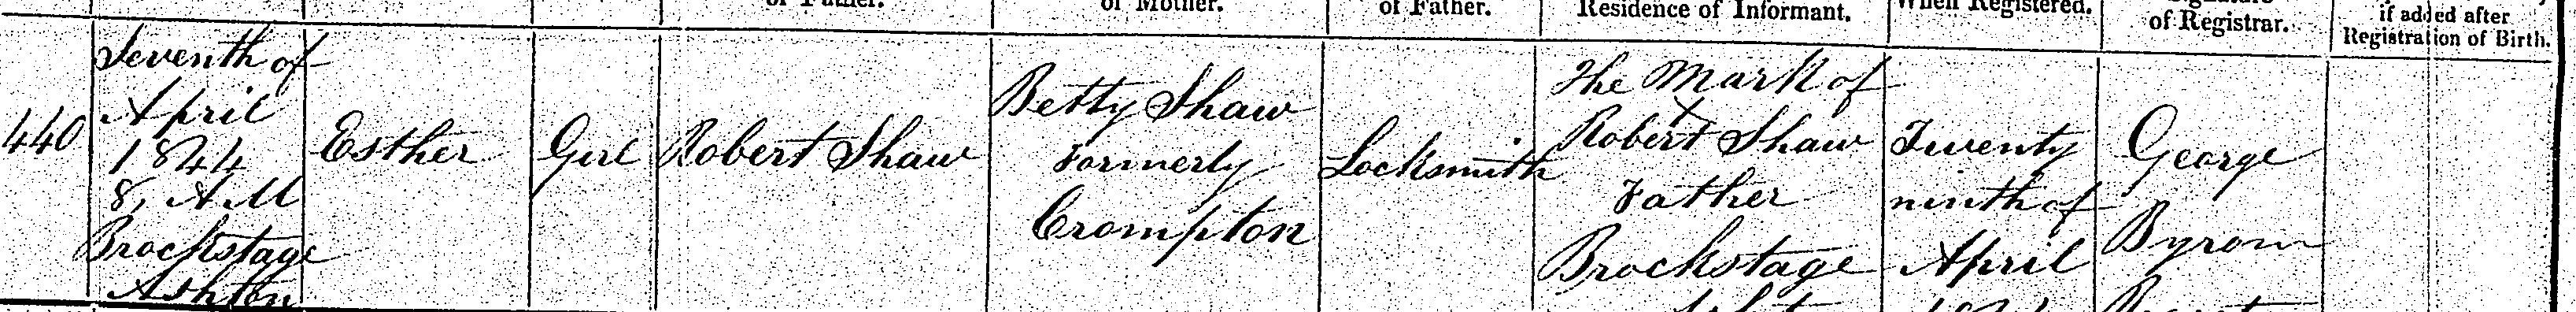 of Father.
of Mother.
of Father.
Residence of Informant.
When Registered.
of Registrar.
if added after
Registration of Birth.
440
Seventh of
April
1844
8, A.M
Brockstage
Ashton
Esther
Girl
Robert Shaw
Betty Shaw
Formerly
Crompton
Locksmith
The Mark of
X
Robert Shaw
Father
Brockstage
Twenty
ninth of
April
George
Byrom